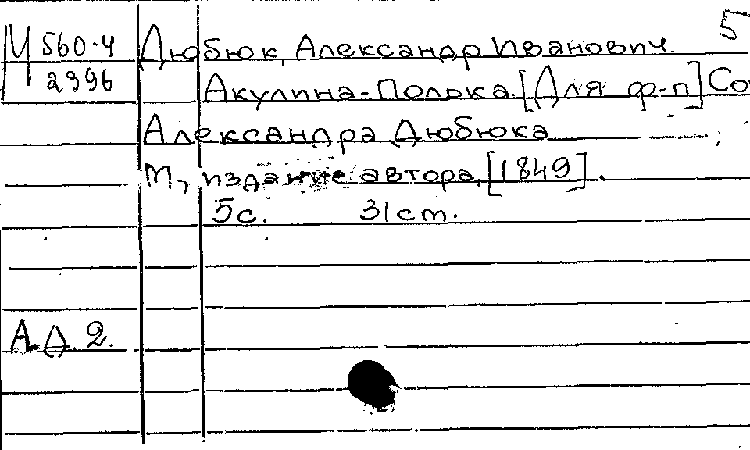 5
Ц 560-4 Дюбюк, Александр Иванович.
2396 Акулина-Полька. [Для ф-п] Со
Александра Дюбюка
М., издание автора, [1849].
5с. 31cm.
А.Д. 2.